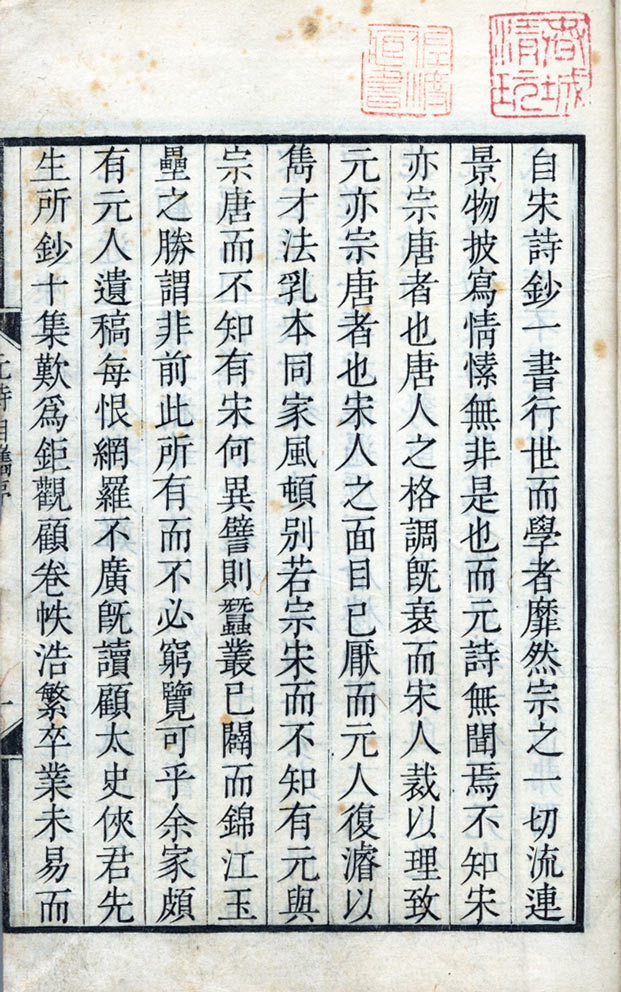 自宋詩鈔一書行世而學者靡然宗之一切流連
景物披寫情愫無非是也而元詩無聞焉不知宋
亦宗唐者也唐人之格調旣衰而宋人裁以理致
元亦宗唐者也宋人之面目已厭而元人復濬以
雋才法乳本同家風頓別若宗宋而不知有元與
宗唐而不知有宋何異譬則蠶叢已闢而錦江玉
壘之勝謂非前此所有而不必窮覽可乎余家頗
有元人遺稿每恨網羅不廣旣讀顧太史俠君先
生所鈔十集歎爲鉅觀顧卷帙浩繁卒業未易而
元詩自攜序
一